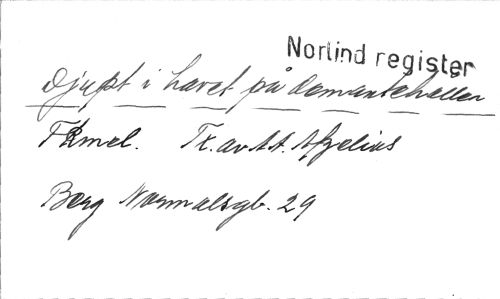 Norlind register
Djupt i havet på demantehällen
Fkmel. Tx. av A.A. Afzelius
Berg Normalsgb. 29